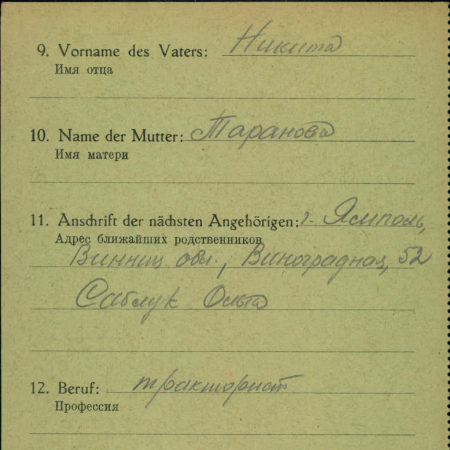 9. Vorname des Vaters: Никита
Имя отца
10. Name der Mutter: Таранова
Имя матери
11. Anschrift der nächsten Angehörigen: г. Ямполь,
Адрес ближайших родственников
Винниц обл., Виноградная, 52
Саблук Ольга
12. Beruf: тракторист
Профессия